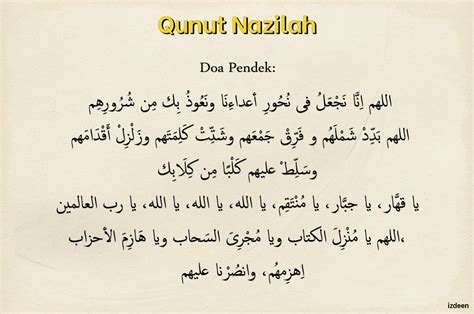 Qunut Nazilah
Doa Pendek:
اللهم اِنَّا نَجْعَلُ فى نُحُورِ أعداءِنَا ونَعُوذُ بِك مِن شُرُورِهِم
اللهم بَدِّدْ شَمْلَهُم و فَرِّقْ جَمْعَهم وشَتِّتْ كَلِمَتَهم وزَلْزِلْ أَقْدَامَهم
وسَلِّطْ عليهم كَلْبًا مِن كِلَابِك
يا قهَّار، يا جبَّار، يا مُنْتَقِم، يا الله، يا الله، يا الله، يا رب العالمين
،اللهم يا مُنْزِلَ الكتاب ويا مُجْرِىَ السَحاب ويا هَازِمَ الأحزاب
اِهزِمهُم، وانصُرْنا عليهم
izdeen